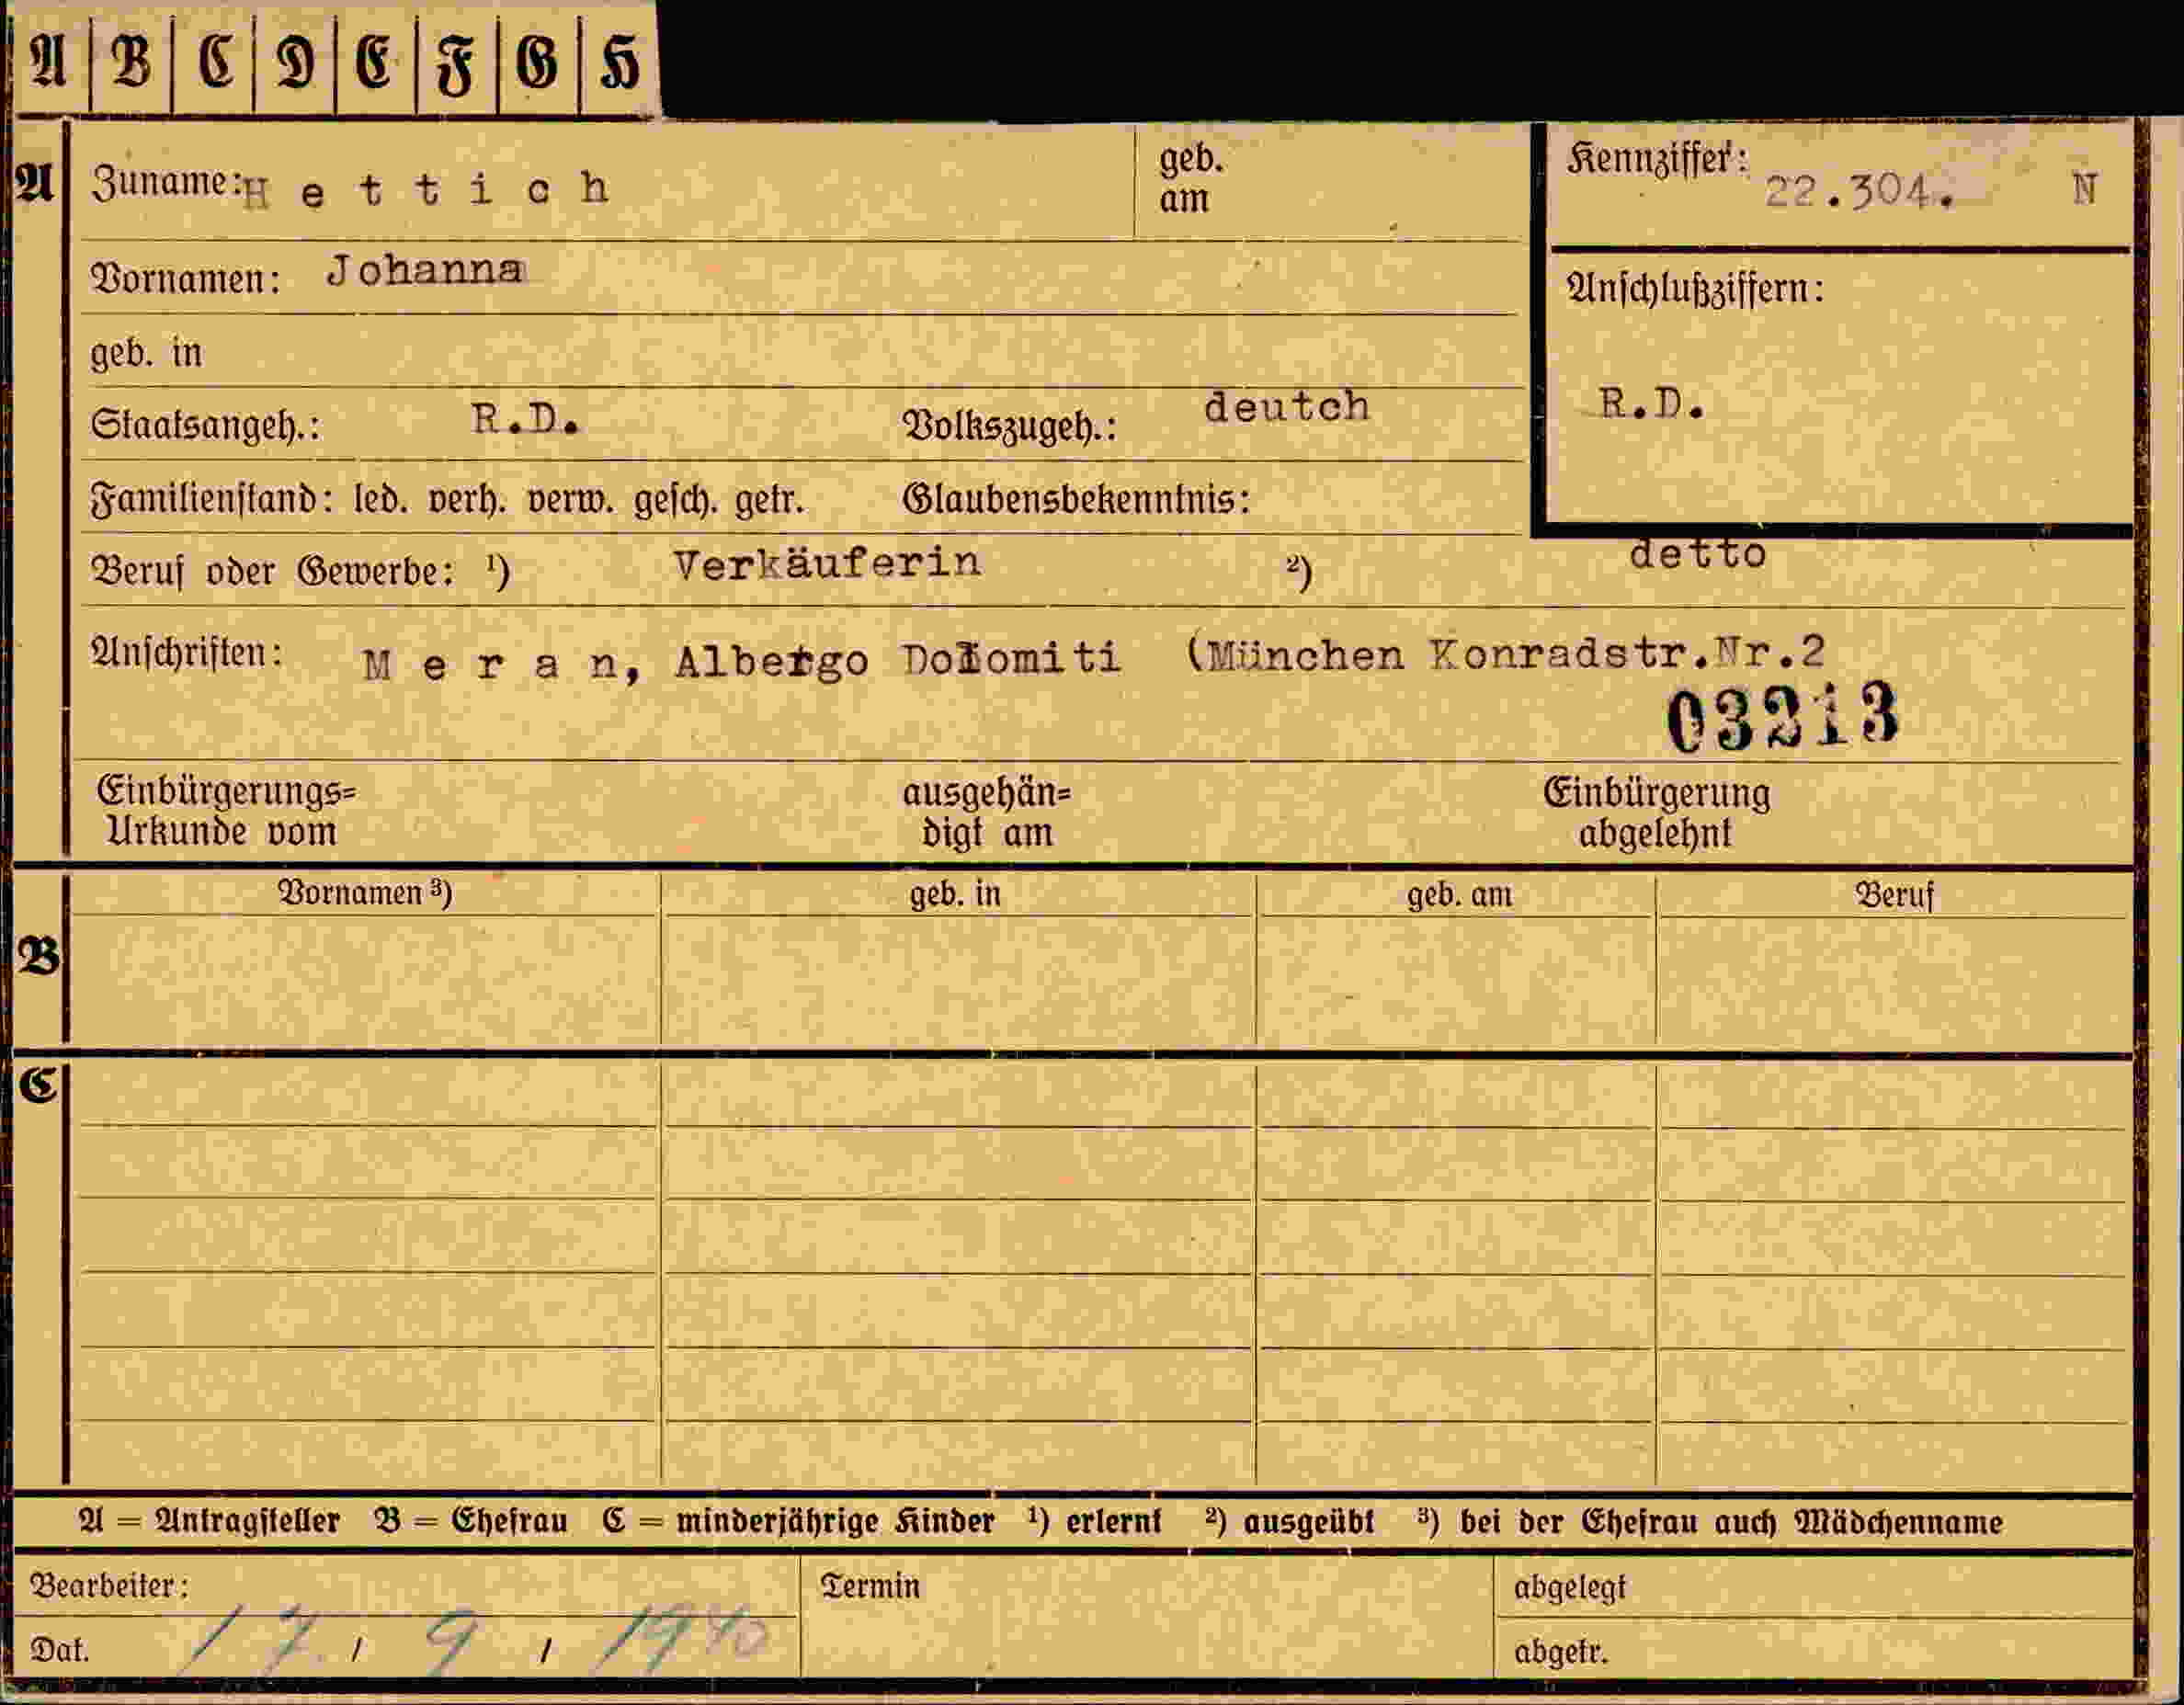 A B C D E F G H
A Zuname: Hettich geb. am Kennziffer: 22.304. N
Vornamen: Johanna Anschlußziffern:
geb. in
Staatsangeh.: R.D. Volkszugeh.: deutch R.D.
Familienstand: led. verh. verw. gesch. getr. Glaubensbekenntnis:
Beruf oder Gewerbe: ¹) Verkäuferin ²) detto
Anschriften: Meran, Albergo Dolomiti (München Konradstr.Nr.2
03213
Einbürgerungs= ausgehän= Einbürgerung
Urkunde vom digt am abgelehnt
Vornamen ³) geb. in geb. am Beruf
B
C
A = Antragsteller B = Ehefrau C = minderjährige Kinder ¹) erlernt ²) ausgeübt ³) bei der Ehefrau auch Mädchenname
Bearbeiter: Termin abgelegt
Dat. 17. / 9 / 1940 abgetr.